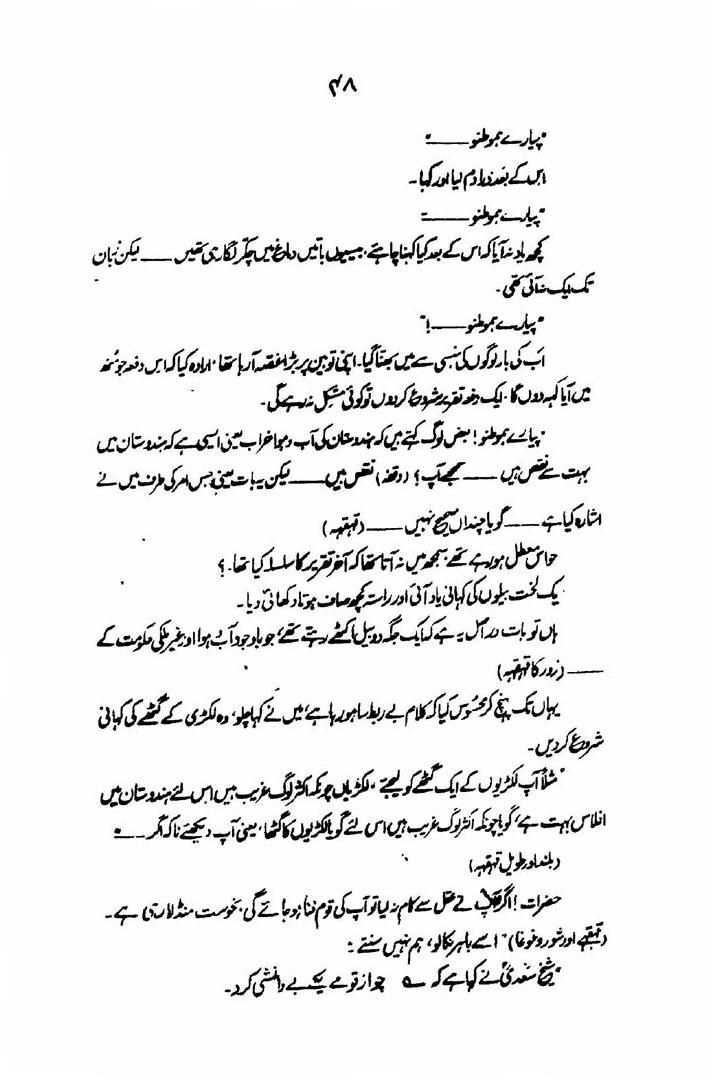 ۴۸
"پیارے ہموطنو ــــــ"
اس کے بعد ذرا دم لیا اور کہا۔
"پیارے ہموطنو ــــــ"
کچھ یاد نہ آیا کہ اس کے بعد کیا کہنا چاہئے، بیسیوں باتیں دماغ میں چکر لگا رہی تھیں ــــــ لیکن زبان
تک ایک نہ آئی تھی۔
"پیارے ہموطنو ــــــ!"
اب کی بار لوگوں کی ہنسی سے میں بھنا گیا۔ اپنی توہین پر بڑا غصہ آ رہا تھا، ارادہ کیا کہ اس دفعہ جو منھ
میں آیا کہہ دوں گا، ایک دفعہ تقریر شروع کر دوں تو کوئی مشکل نہ رہے گی۔
"پیارے ہموطنو! بعض لوگ کہتے ہیں کہ ہندوستان کی آب و ہوا خراب یعنی ایسی ہے کہ ہندوستان میں
بہت سے نقص ہیں ــــــ سمجھے آپ؟ (وقفہ) نقص ہیں ــــــ لیکن یہ بات یعنی جس امر کی طرف میں نے
اشارہ کیا ہے ــــــ گویا چنداں صحیح نہیں ــــــ (قہقہہ)
حواس معطل ہو رہے تھے، سمجھ میں نہ آتا تھا کہ آخر تقریر کا سلسلہ کیا تھا۔؟
یک لخت بیلوں کی کہانی یاد آئی اور راستہ کچھ صاف ہوتا دکھائی دیا۔
ہاں تو بات در اصل یہ ہے کہ ایک جگہ دو بیل اکٹھے رہتے تھے، جو باوجود آب ہوا اور غیر ملکی حکومت کے
ــــــ (زور کا قہقہہ)
یہاں تک پہنچ کر محسوس کیا کہ کلام بے ربط سا ہو رہا ہے، میں نے کہا چلو، وہ لکڑی کے گٹھے کی کہانی
شروع کر دیں۔
"مثلاً آپ لکڑیوں کے ایک گٹھے کو لیجئے، لکڑیاں چونکہ اکثر لوگ غریب ہیں اس لئے ہندوستان میں
افلاس بہت ہے، گویا چونکہ اکثر لوگ غریب ہیں اس لئے گویا لکڑیوں کا گٹھا، یعنی آپ دیکھئے نا کہ اگر ــــــ"
(بلند اور طویل قہقہہ)
حضرات! اگر آپ نے عقل سے کام نہ لیا تو آپ کی قوم فنا ہو جائے گی، نحوست منڈلا رہی ہے۔
(قہقہے اور شور و غوغا) "اسے باہر نکالو، ہم نہیں سنتے"
"شیخ سعدیؒ نے کہا ہے کہ ؎ چو از قومے یکے بے دانشی کرد۔